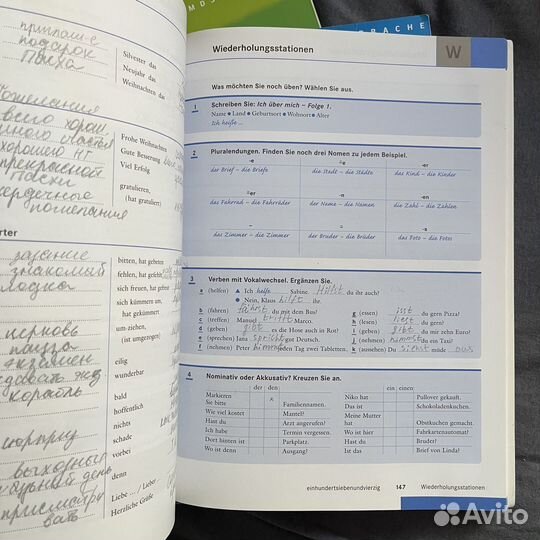 приглаш-е
подарок
Пасха
Silvester das
Neujahr das
Weihnachten das
Frohe Weihnachten
Gute Besserung
Viel Erfolg
gratulieren,
(hat gratuliert)
прекрасной
Пасхи
сердечные
пожелания
bitten, hat gebeten
fehlen, hat gefehlt
sich freuen, hat gefreut
sich kümmern um,
hat gekümmert
um·ziehen,
(ist umgezogen)
eilig
wunderbar
bald
hoffentlich
nichts
schade
vorbei
denn
Liebe ... / Lieber
Herzliche Grüße
знакомый
лодка
церковь
пауза
экзамен
корабль
сюрприз
SPRACHE
Wiederholungsstationen
W
Was möchten Sie noch üben? Wählen Sie aus.
1 Schreiben Sie: Ich über mich – Folge 1.
Name • Land • Geburtsort • Wohnort • Alter
Ich heiße ...
2 Pluralendungen. Finden Sie noch drei Nomen zu jedem Beispiel.
-e ¨-e -er
der Brief – die Briefe die Stadt – die Städte das Kind – die Kinder
¨-er -n -en
das Fahrrad – die Fahrräder der Name – die Namen die Zahl – die Zahlen
- ¨- -s
das Zimmer – die Zimmer der Bruder – die Brüder das Foto – die Fotos
3 Verben mit Vokalwechsel. Ergänzen Sie.
a (helfen) ▲ Ich helfe Sabine. Hilfst du ihr auch?
● Nein, Klaus hilft ihr.
b (fahren) fährst du mit dem Bus?
c (treffen) Manuel trifft Marco.
d (geben) gibt es die Hose auch in Rot?
e (sprechen) Jana spricht gut Deutsch.
f (nehmen) Peter nimmt jeden Tag zwei Tabletten.
g (essen) isst du gern Pizza?
h (lesen) liest du gern?
i (geben) gibt du mir zehn Euro?
j (nehmen) nimmst du ein Taxi?
k (aussehen) Du siehst müde aus
4 Nominativ oder Akkusativ? Kreuzen Sie an.
der den ein einen
Markieren
Sie bitte x Familiennamen.
Wie viel kostet Mantel?
Hast du Arzt angerufen?
Ich habe Termin vergessen.
Dort hinten ist Parkplatz.
Wo ist denn Ausgang?
Niko hat Pullover gekauft.
Das ist Schokoladenkuchen.
Meine Mutter
hat Obstkuchen gemacht.
Wo ist hier Fahrkartenautomat?
Hast du Bruder?
Ist das Brief von Linda?
einhundertsiebenundvierzig 147 Wiederholungsstationen
Avito